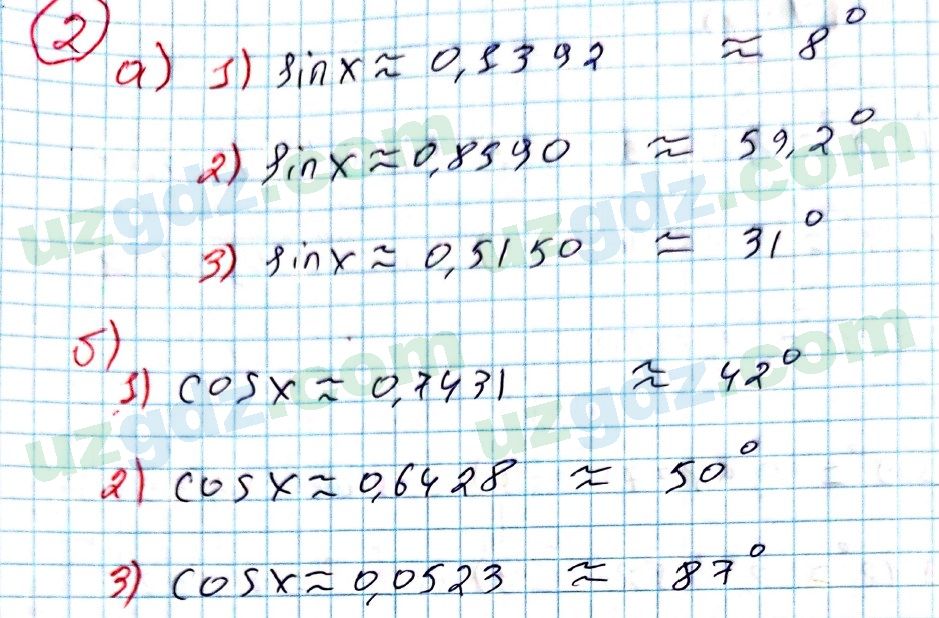 2
а) 1) sinx ≈ 0,1392 ≈ 8°
2) sinx ≈ 0,8590 ≈ 59,2°
3) sinx ≈ 0,5150 ≈ 31°
б)
1) cosx ≈ 0,7431 ≈ 42°
2) cosx ≈ 0,6428 ≈ 50°
3) cosx ≈ 0,0523 ≈ 87°
uzgdz.com
uzgdz.com
uzgdz.com
uzgdz.com